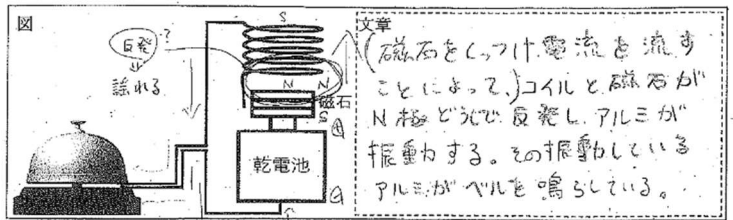 図
反発?
⇓
譲れる
S
N
N
磁石
S
⊕
乾電池
⊖
文章
(磁石をくっつけ、電流を流す
ことによって、)コイルと磁石が
N極どうしで反発し、アルミが
振動する。その振動している
アルミがベルを鳴らしている。